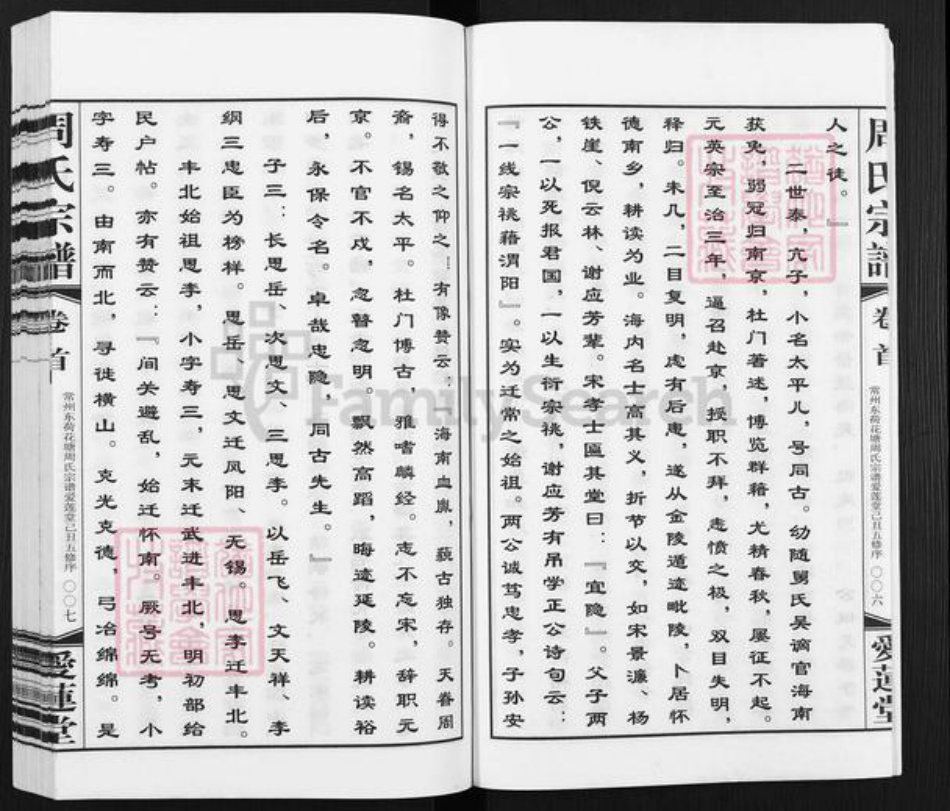 周氏宗谱
卷首
常州东荷花塘周氏宗谱爱莲堂己丑五修序
〇〇六
爱莲堂
人之徒。』
二世泰,亢子,小名太平儿,号同古。幼随舅氏吴谪官海南
获免,弱冠归南京,杜门著述,博览群籍,尤精春秋,屡征不起。
元英宗至治三年,逼召赴京,授职不拜,恚愤之极,双目失明,
释归。未几,二目复明,虑有后患,遂从金陵遁迹毗陵,卜居怀
德南乡,耕读为业。海内名士高其义,折节以交,如宋景濂、杨
铁崖、倪云林、谢应芳辈。宋学士匾其堂曰:『宜隐』。父子两
公,一以死报君国,一以生衍宗祧,谢应芳有吊学正公诗句云:
『一线宗祧藉渭阳』。实为迁常之始祖。两公诚笃忠孝,子孙安
得不敬之仰之…有像赞云:『海南血胤,藐古独存。天眷周
裔,锡名太平。杜门博古,雅嗜麟经。志不忘宋,辞职元
京。不官不戍,忽瞽忽明。飘然高蹈,晦迹延陵。耕读裕
后,永保令名。卓哉忠隐,同古先生。』
子三:长思岳、次思文、三思李。以岳飞、文天祥、李
纲三忠臣为榜样。思岳、思文迁凤阳、无锡。思李迁丰北。
丰北始祖思李,小字寿三,元末迁武进丰北,明初部给
民户帖。亦有赞云:『间关避乱,始迁怀南。厥号无考,小
字寿三。由南而北,寻徙横山。克光克德,弓冶绵绵。是
周氏宗谱
卷首
常州东荷花塘周氏宗谱爱莲堂己丑五修序
〇〇七
爱莲堂
FamilySearch